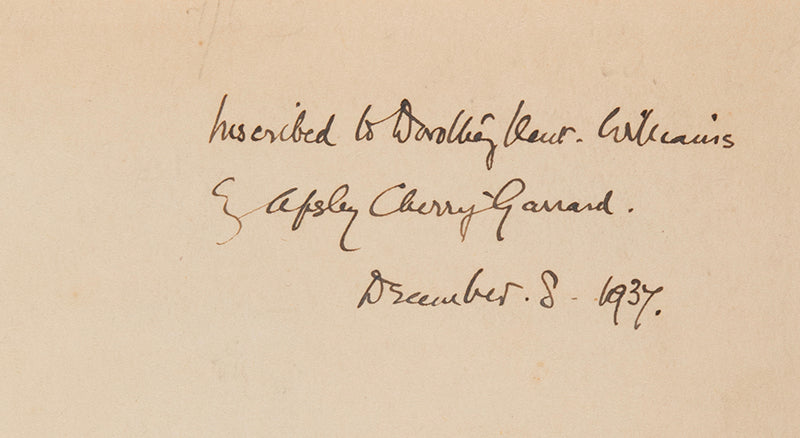 Inscribed to Dorothy Kent-Williams
By Apsley Cherry-Garrard.
December. 8 - 1937.